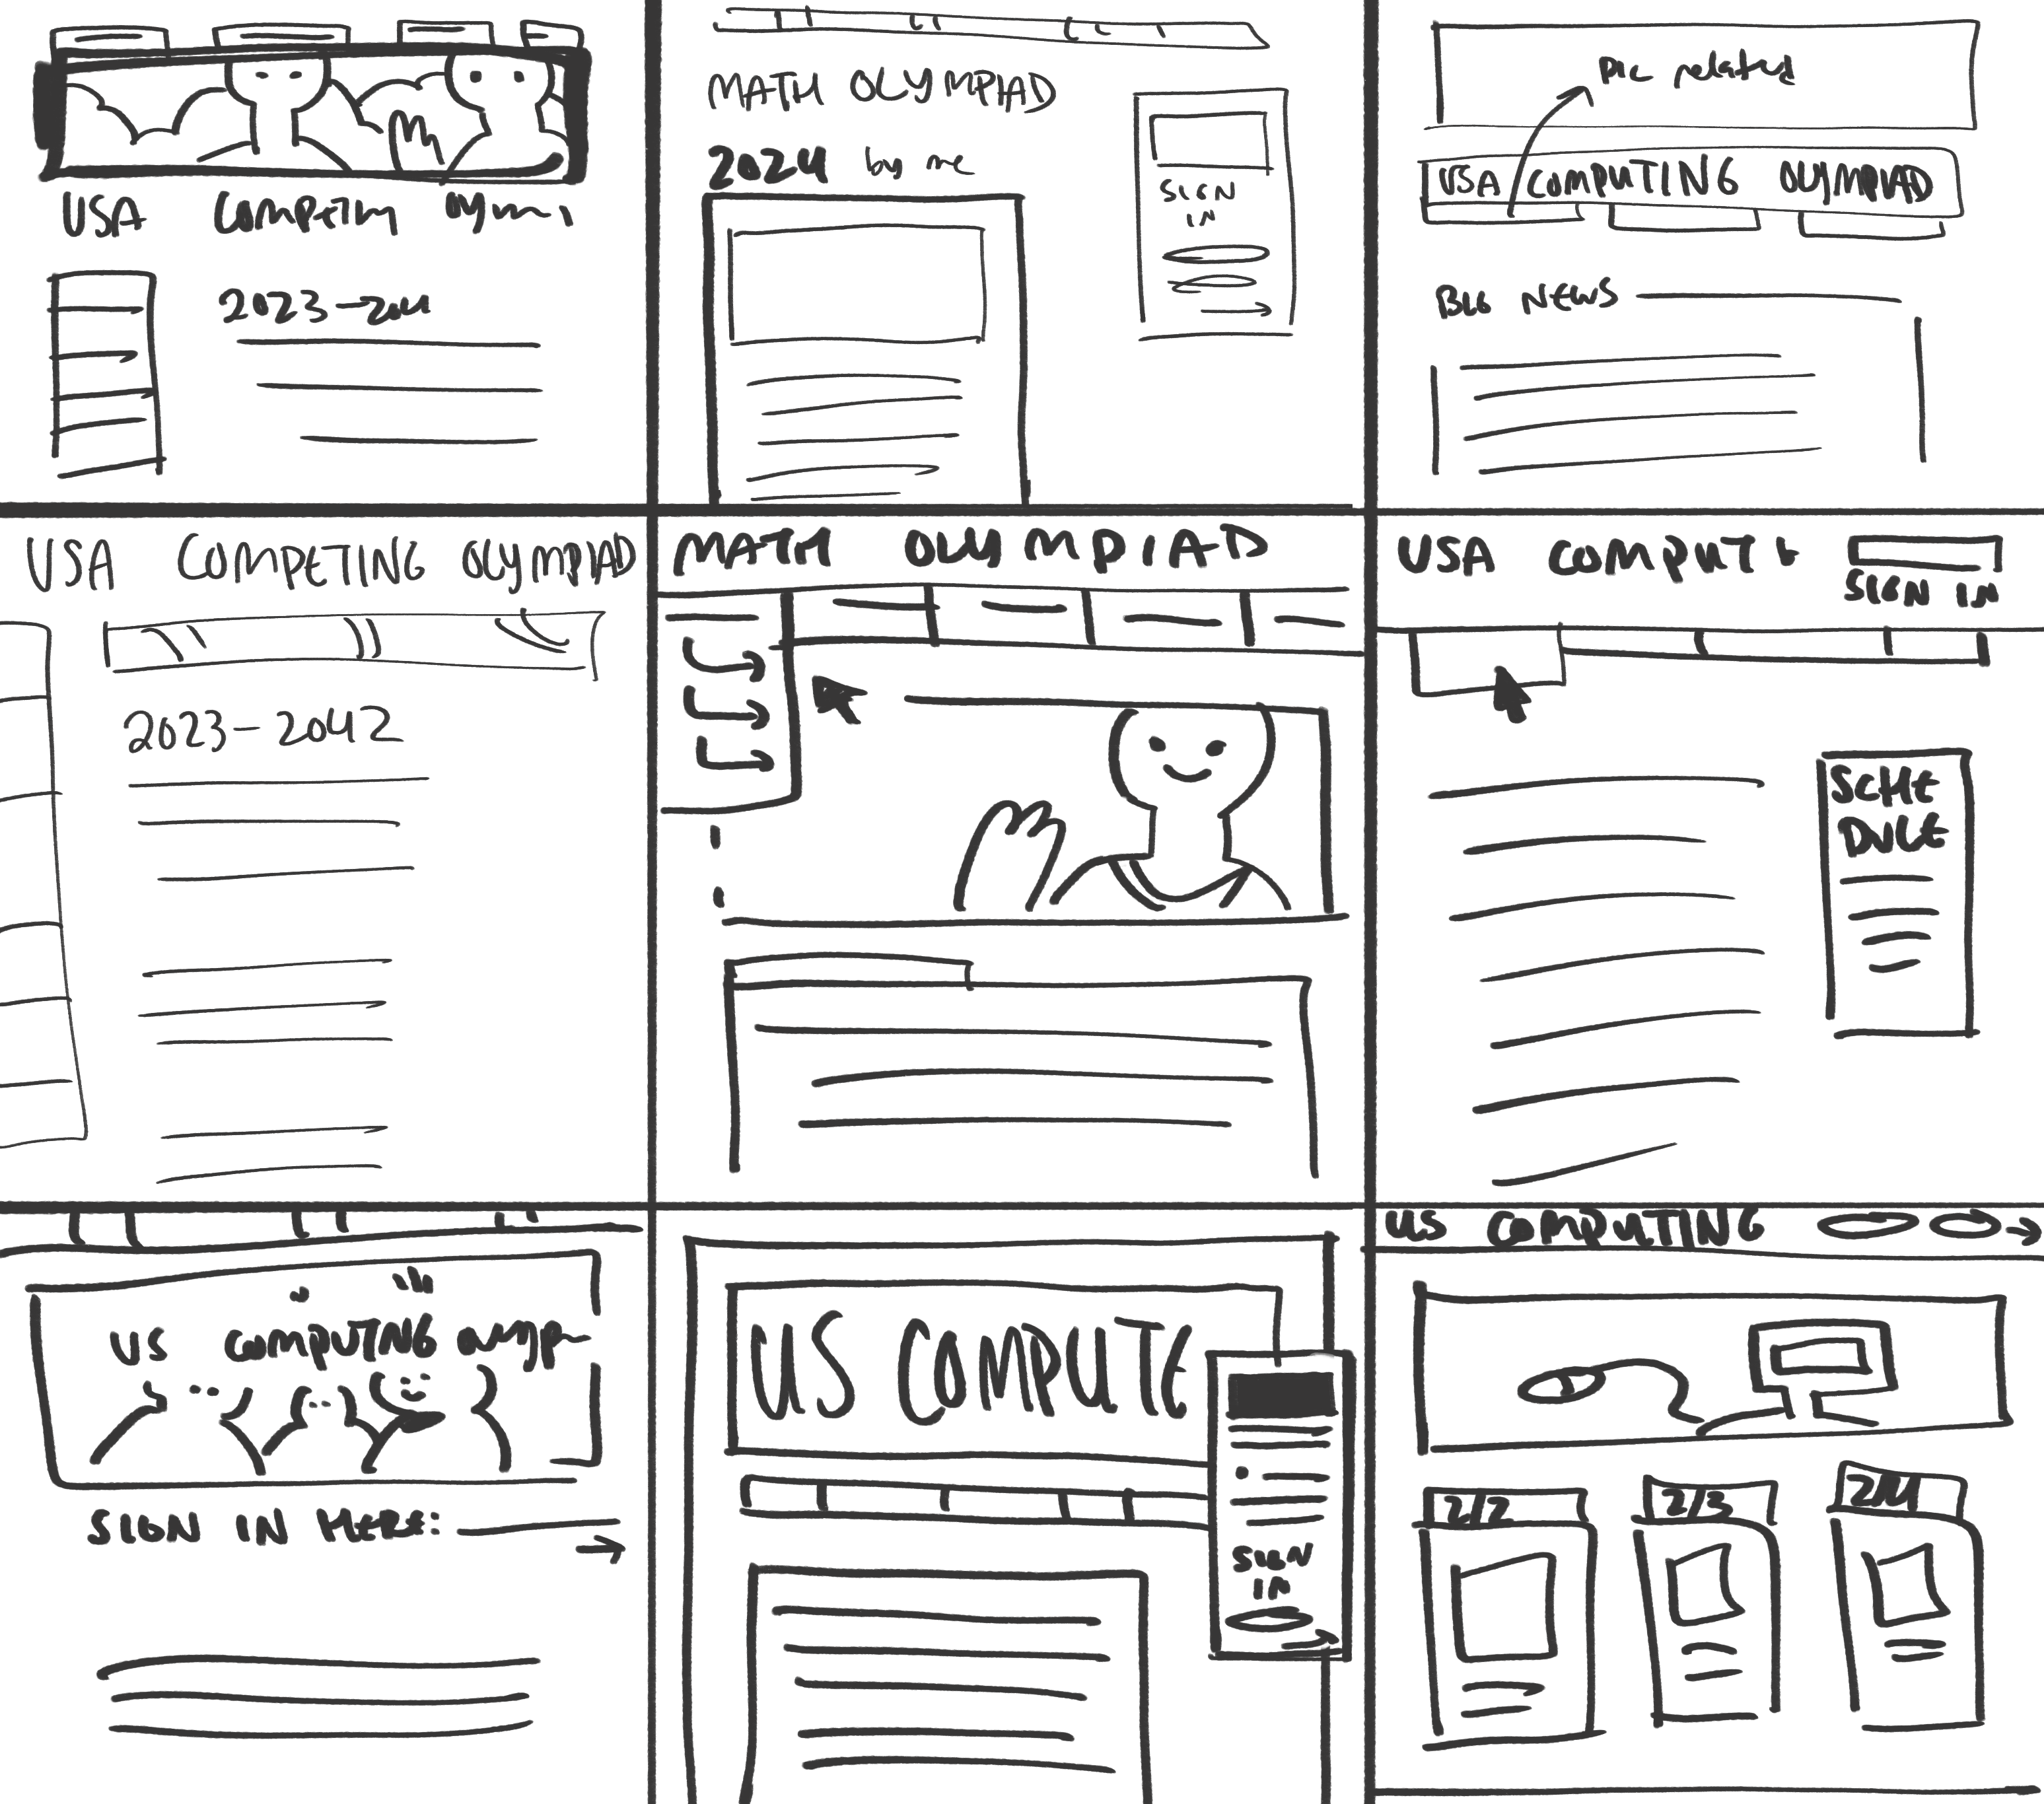 USA
2023-
MATH OLYMPIAD
2024 by me
SIGN
IN
pic related
USA COMPUTING OLYMPIAD
BIG NEWS
USA COMPETING OLYMPIAD
2023-2042
MATH OLYMPIAD
USA COMPUT
SIGN IN
SCHE
DULE
US COMPUTING
SIGN IN HERE:
US COMPUTE
SIGN
IN
US COMPUTING
2/2
2/3
2/4